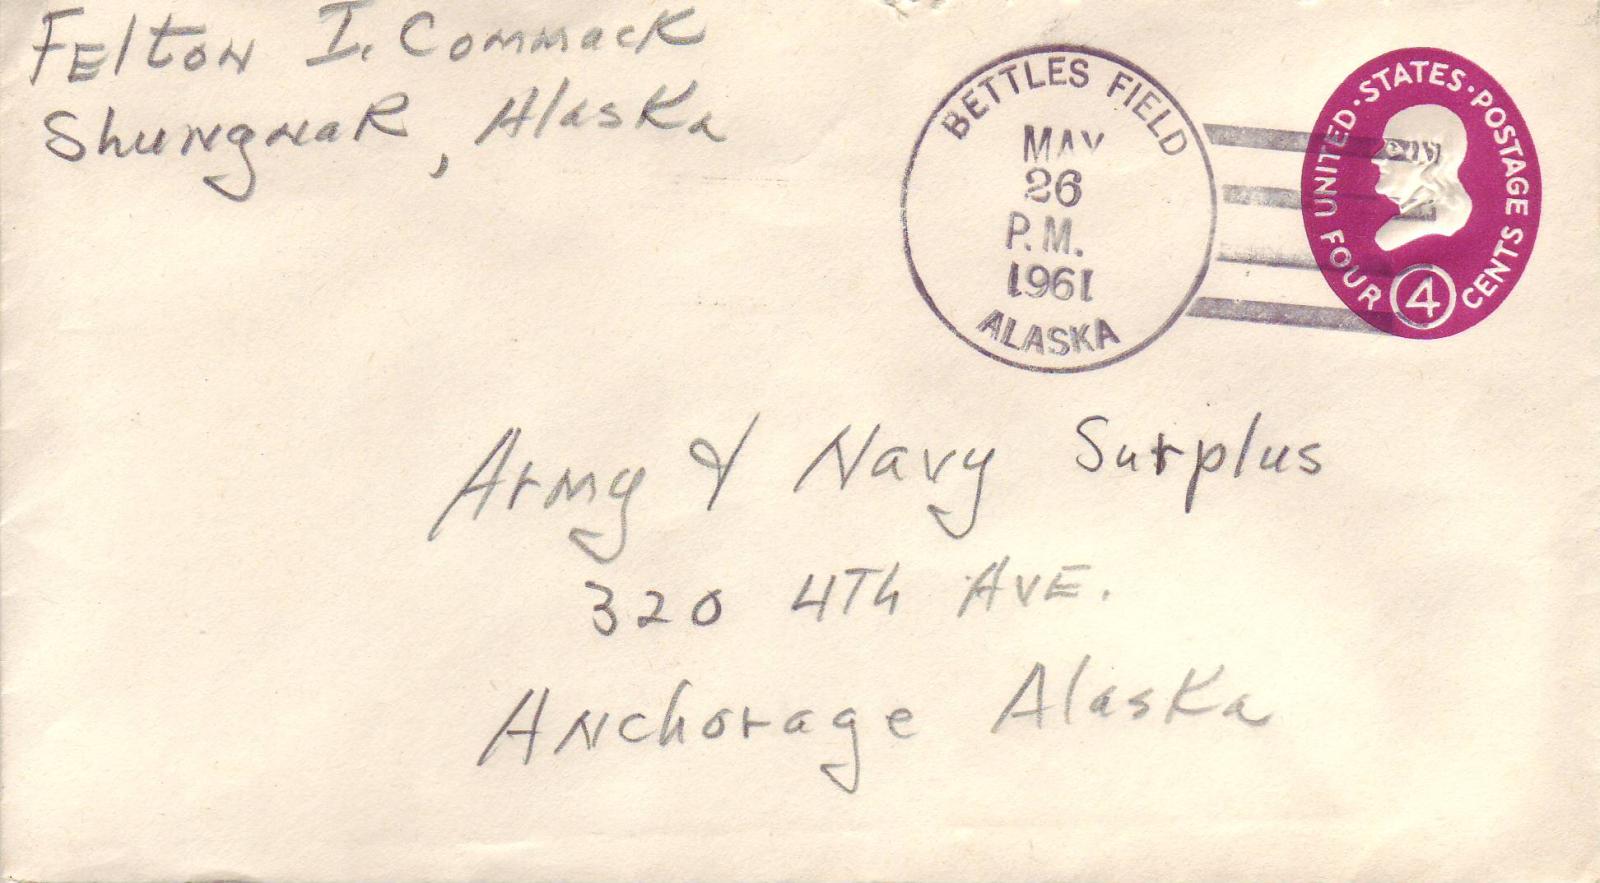 Felton I. Commack
Shungnak, Alaska
BETTLES FIELD
MAY
26
P.M.
1961
ALASKA
UNITED·STATES·POSTAGE
FOUR 4 CENTS
Army & Navy Surplus
320 4Th AVE.
Anchorage Alaska